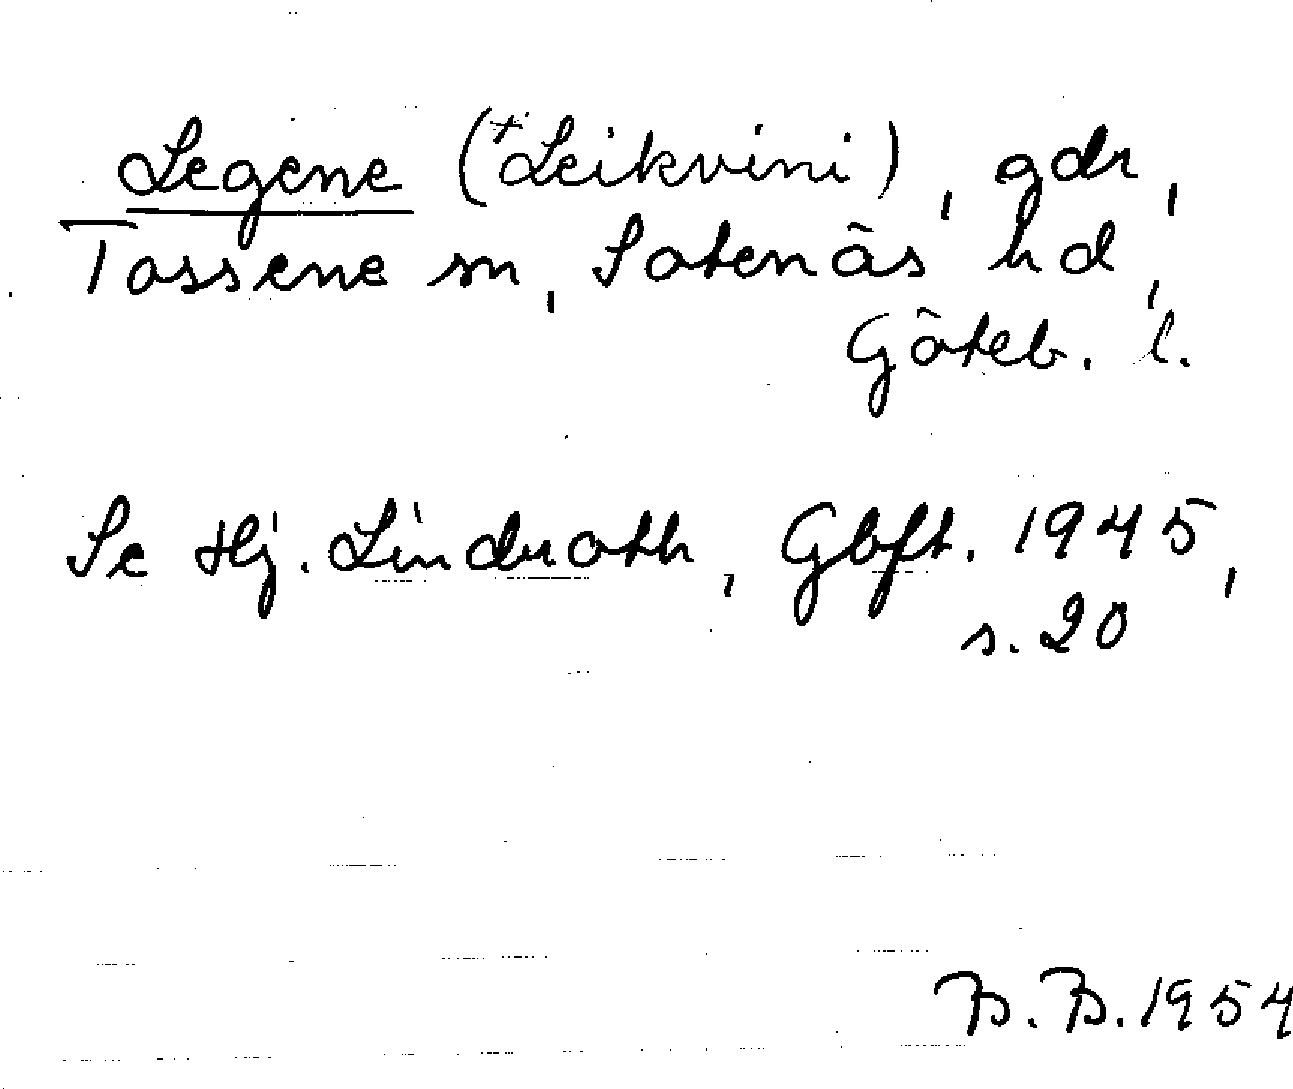 Legene (*Leikvini), gdr,
Tossene sn, Sotenäs hd,
Göteb. l.
Se Hj. Lindroth, Gbft. 1945,
s. 20
B. B. 1954